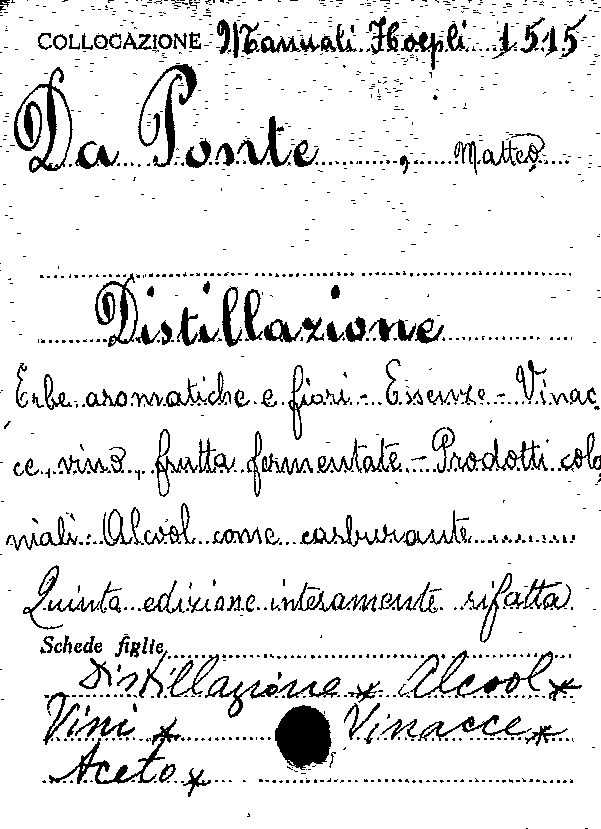 COLLOCAZIONE Manuali Hoepli 1515
Da Ponte , Matteo
Distillazione
Erbe aromatiche e fiori - Essenze - Vinac
ce, vino, frutta fermentate - Prodotti colo
niali - Alcool come carburante
Quinta edizione interamente rifatta
Schede figlie
Distillazione x Alcool x
Vini x Vinacce x
Aceto x